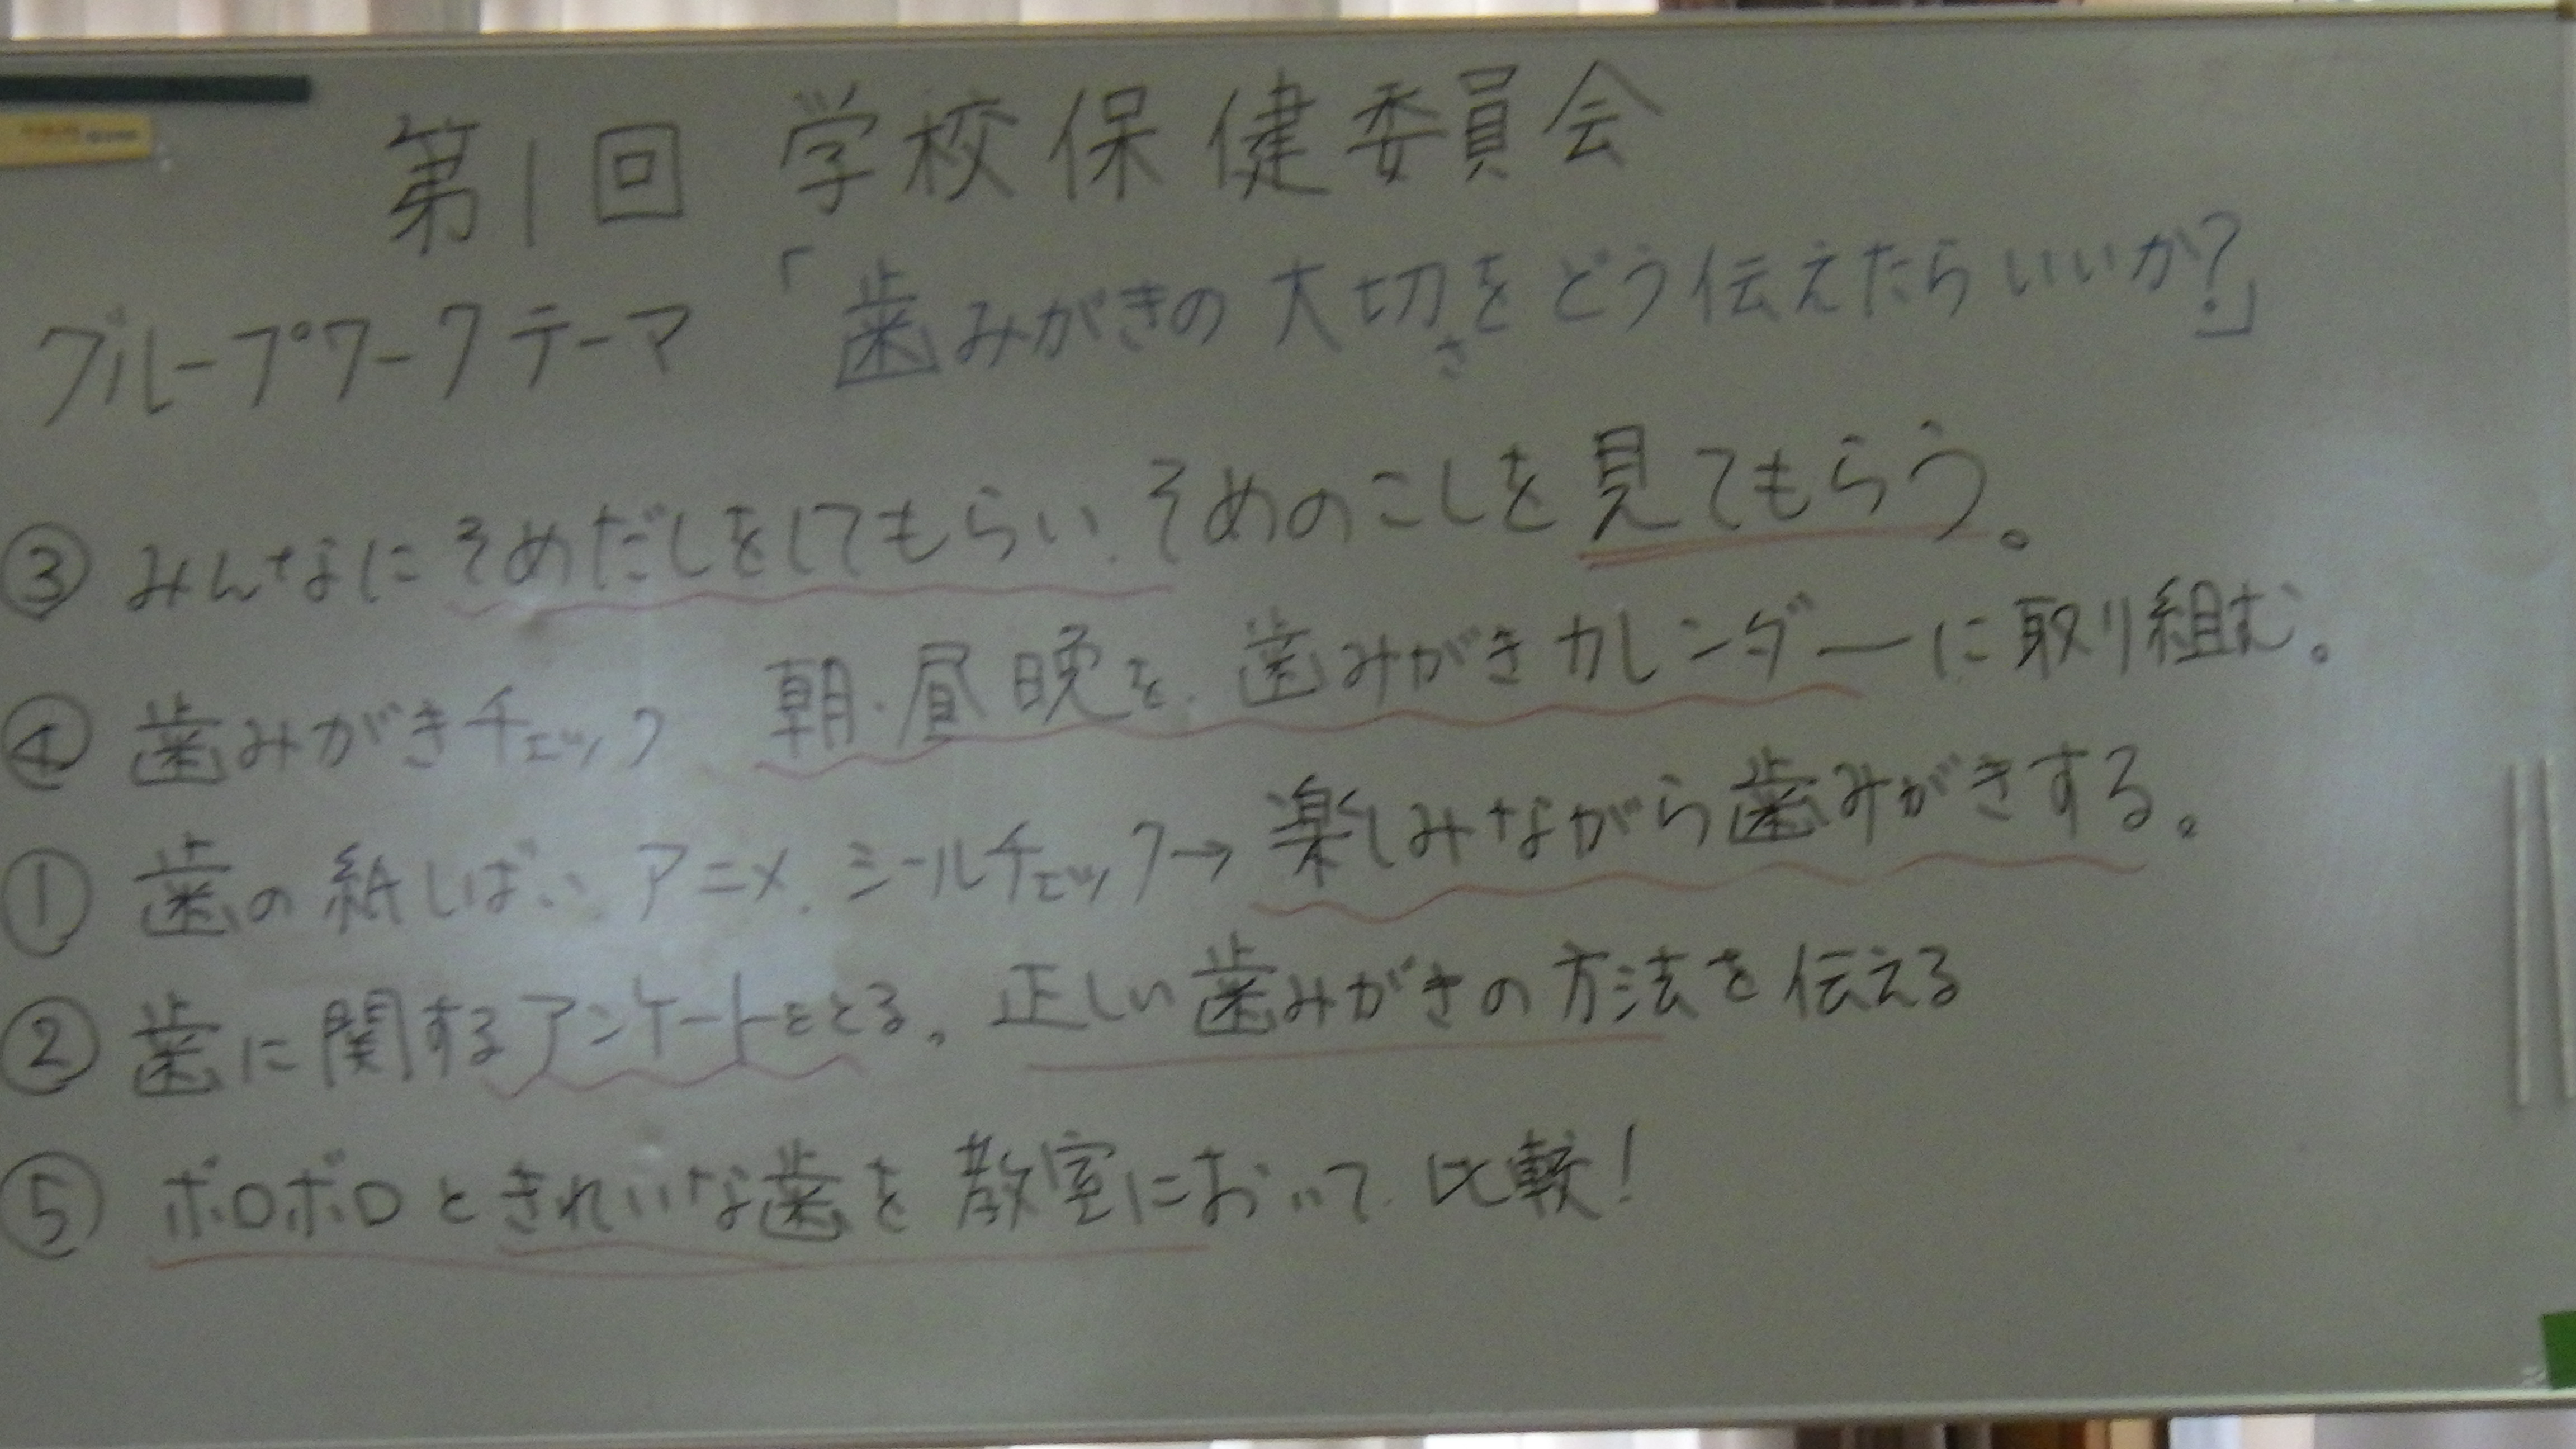 第1回 学校保健委員会
グループワークテーマ 「歯みがきの大切さをどう伝えたらいいか?」
③ みんなにそめだしをしてもらい、そめのこしを見てもらう。
④ 歯みがきチェック 朝・昼晩を、歯みがきカレンダーに取り組む。
① 歯の紙しばい、アニメ、シールチェック→楽しみながら歯みがきする。
② 歯に関するアンケートをとる。正しい歯みがきの方法を伝える
⑤ ボロボロときれいな歯を教室において、比較!